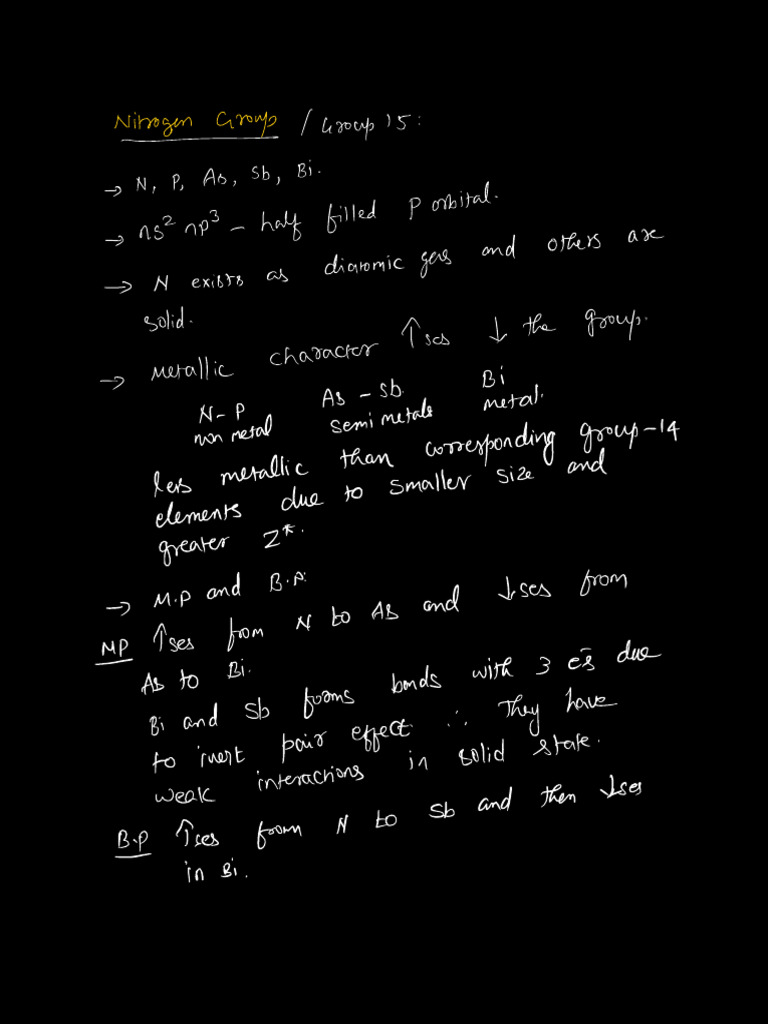 Nitrogen Group / Group 15:
→ N, P, As, Sb, Bi.
→ ns² np³ – half filled p orbital.
→ N exists as diatomic gas and others are
solid.
→ Metallic character ↑ses ↓ the group.
N-P As - Sb. Bi
non metal semi metals metal.
less metallic than corresponding group-14
elements due to smaller size and
greater Z*.
→ M.p and B.p:
MP ↑ses from N to As and ↓ses from
As to Bi.
Bi and Sb forms bonds with 3 e⁻s due
to inert pair effect. ∴ They have
weak interactions in solid state.
B.p ↑ses from N to Sb and then ↓ses
in Bi.